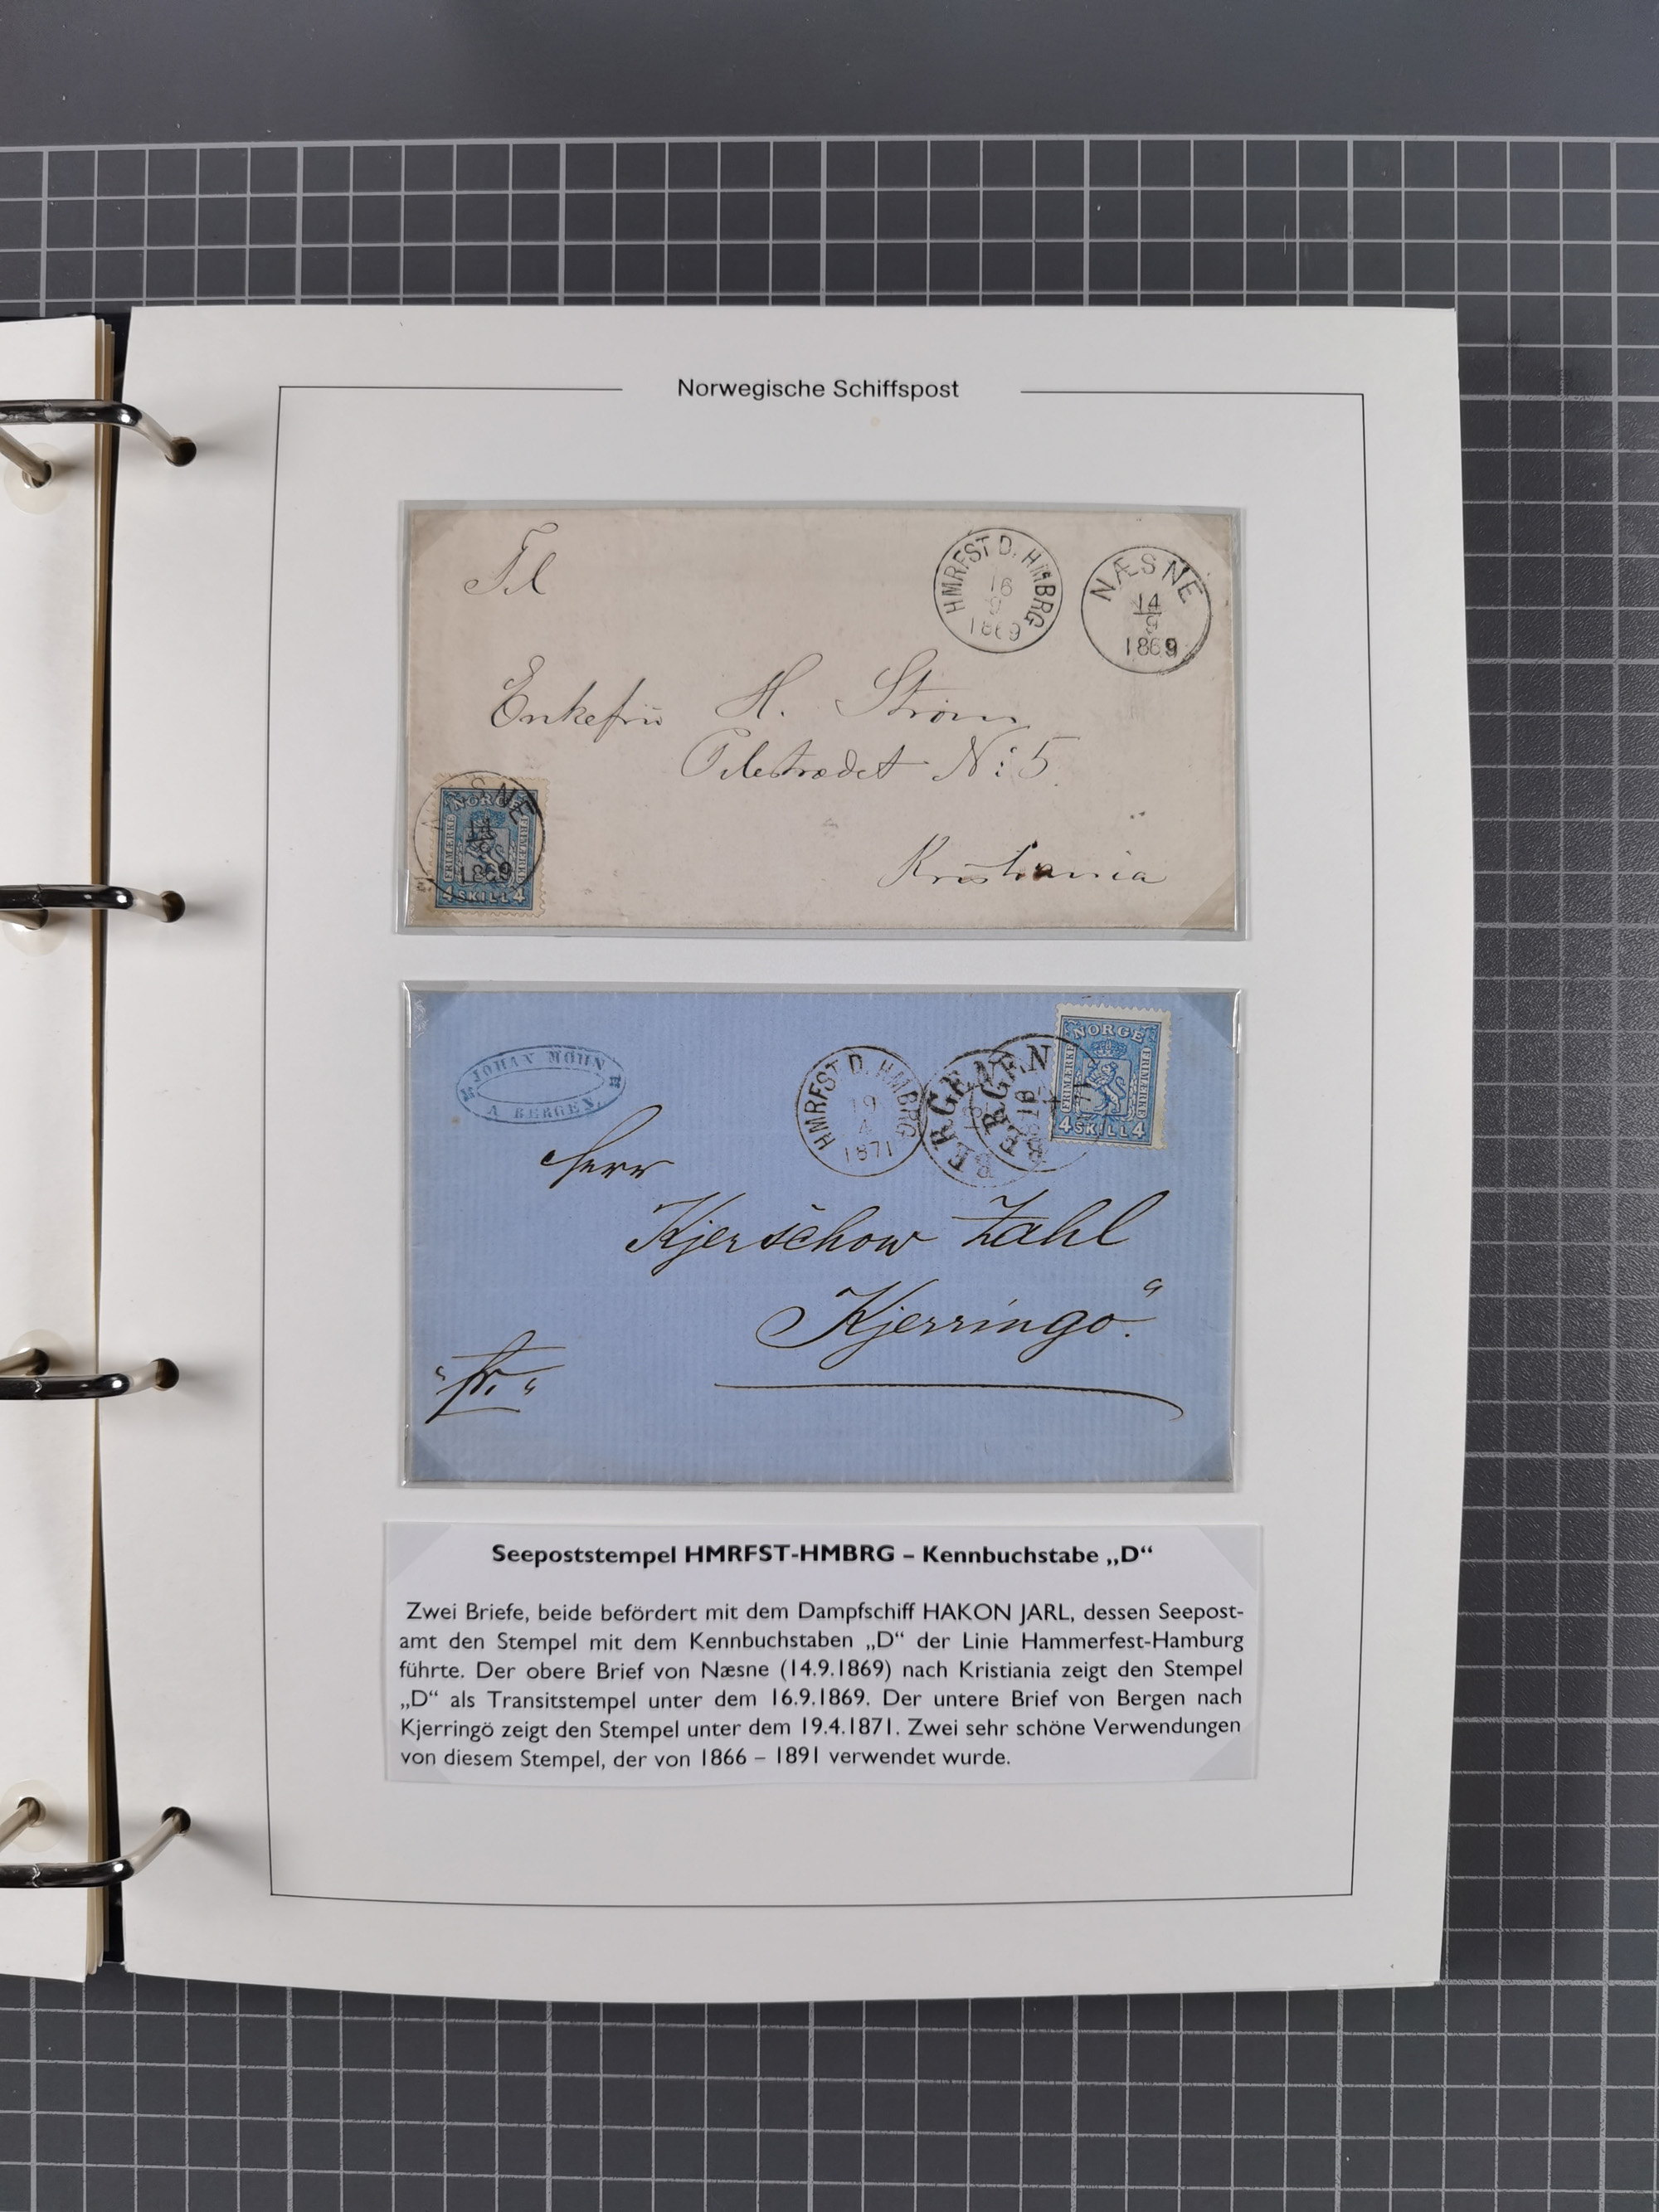 Norwegische Schiffspost
Til
HMRFST D. HMBRG
16
9
1869
NÆSNE
14
9
1869
Enkefrü H. Strøm
Pilestrædet No: 5.
Kristiania
NÆSNE
14
9
1869
NORGE
FRIMÆRKE FRIMÆRKE
4 SKILL 4
JOHAN MOHN
A BERGEN.
HMRFST D. HMBRG
19
4
1871
BERGEN
BERGEN
NORGE
FRIMÆRKE FRIMÆRKE
4 SKILL 4
Herr
Kjerschow Zahl
Kjerringö.
"fr."
Seepoststempel HMRFST-HMBRG – Kennbuchstabe „D“
Zwei Briefe, beide befördert mit dem Dampfschiff HAKON JARL, dessen Seepost-
amt den Stempel mit dem Kennbuchstaben „D“ der Linie Hammerfest-Hamburg
führte. Der obere Brief von Næsne (14.9.1869) nach Kristiania zeigt den Stempel
„D“ als Transitstempel unter dem 16.9.1869. Der untere Brief von Bergen nach
Kjerringö zeigt den Stempel unter dem 19.4.1871. Zwei sehr schöne Verwendungen
von diesem Stempel, der von 1866 – 1891 verwendet wurde.